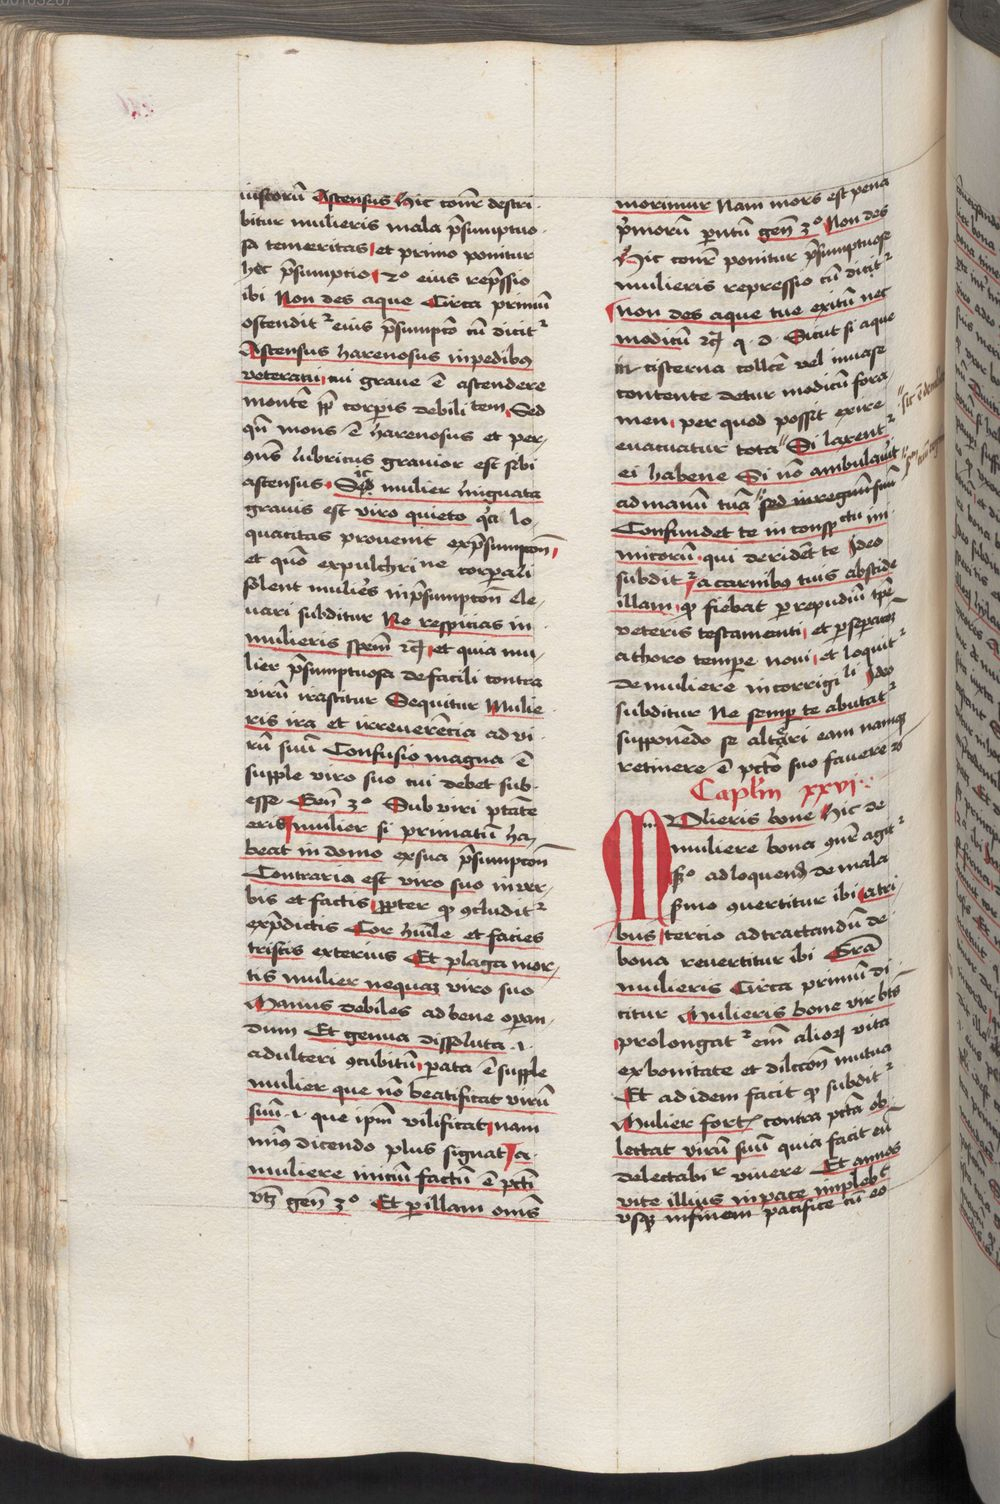 iustorū Ascensus Hic cōnr̄ descri
bitur mulieris mala p̄sumptuo
sa temeritas et primo ponitur
hec p̄sumptio 2º eius rep̄ssio
ibi Non des aque Circa primū
ostendit² eius p̄sumptō cū dicit²
Ascensus harenosus in pedibꝰ
veterani cui graue ē ascendere
montē ꝓp̄ corporis debilitatem Sed
qn̄ mons ē harenosus et per
ꝯn̄s lubricus grauior est sibi
ascensus Sic mulier linguata
grauis est viro quieto q̄a lo
quacitas prouenit ex p̄sumptōn
et quō ex pulchrine corporali
solent mulieꝭs in p̄sumptōn̄ ele
uari subditur Ne respicias in
mulieris sp̄em ⁊cꝫ et quia mu
lier p̄sumptuosa de facili contra
virū irascitur Sequitur Mulie
ris ira et irreuerēcia ad vi
rū suū Confusio magna ē
supple viro suo cui debet sub
esse Gen̄ 3º Sub viri ptāte
eris mulier si primatū ha
beat in domo ex sua p̄sumptōn̄
Contraria est viro suo in ver
bis et factis ꝓpter qꝫ ꝯcludit²
ex p̄dictis Cor hūile et facies
tristis exterius Et plaga mor
tis mulier nequaꝫ viro suo
Manus debiles ad bene operan
dum Et genua dissoluta .i.
adulteri ꝯcubitū parata ē supple
mulier que nō beatificat virū
suū .i. que ip̄m vilificat nam
minꝰ dicendo plus signat A
muliere iniciū factū ē pcti
vtꝫ gen̄ 3º Et per illam om̄s
morimur Nam mors est pena
p̄morū parentū gen̄ 3º Non des
Hic cōnr̄ ponitur p̄sumptuose
mulieris repressio cū dicit²
Non des aque tue exitū nec
modicū ⁊cꝫ q. d. Sicut si aque
in cisterna collecte vel in vase
contente detur modicū fora
men per quod possit exire
euacuatur tota Si laxent²
ei habene Si nō ambulauit
ad manū tuā sed irregnum suū
Confundet te in conspectu ini
micorū qui derident te Ideo
subdit² a carnibꝰ tuis abscide
illam qꝫ fiebat per repudiū tpē
veteris testamenti et per separacōꝫ
a thoro tempore noui et loquit²
de muliere incorrigibili Ideo
subditur Ne semper te abutat²
supponēdo se alteri eam namqꝫ
retinere ē pctō suo fauere
Caplm̄ xxvi
MVlieris bone Hic de
muliere bona ꝯnr̄ agit²
scd̄o ad loquend̄ de mala
primo ꝯuertitur ibi a tri
bus tercio ad tractandū de
bona reuertitur ibi Grā
mulieris Circa primū di
citur Mulieris bone vir bt̄s
prolongat² em̄ alioꝝ vita
ex bonitate et dilccōn̄ mutua
Et ad idem facit qꝫ subdit²
Mulier fortꝭ contra pctā ob
lectat virū suū quia facit eū
delectabilr viuere Et annos
vite illius in pace impleb̄t
vsqꝫ in finem pacifice cū eo